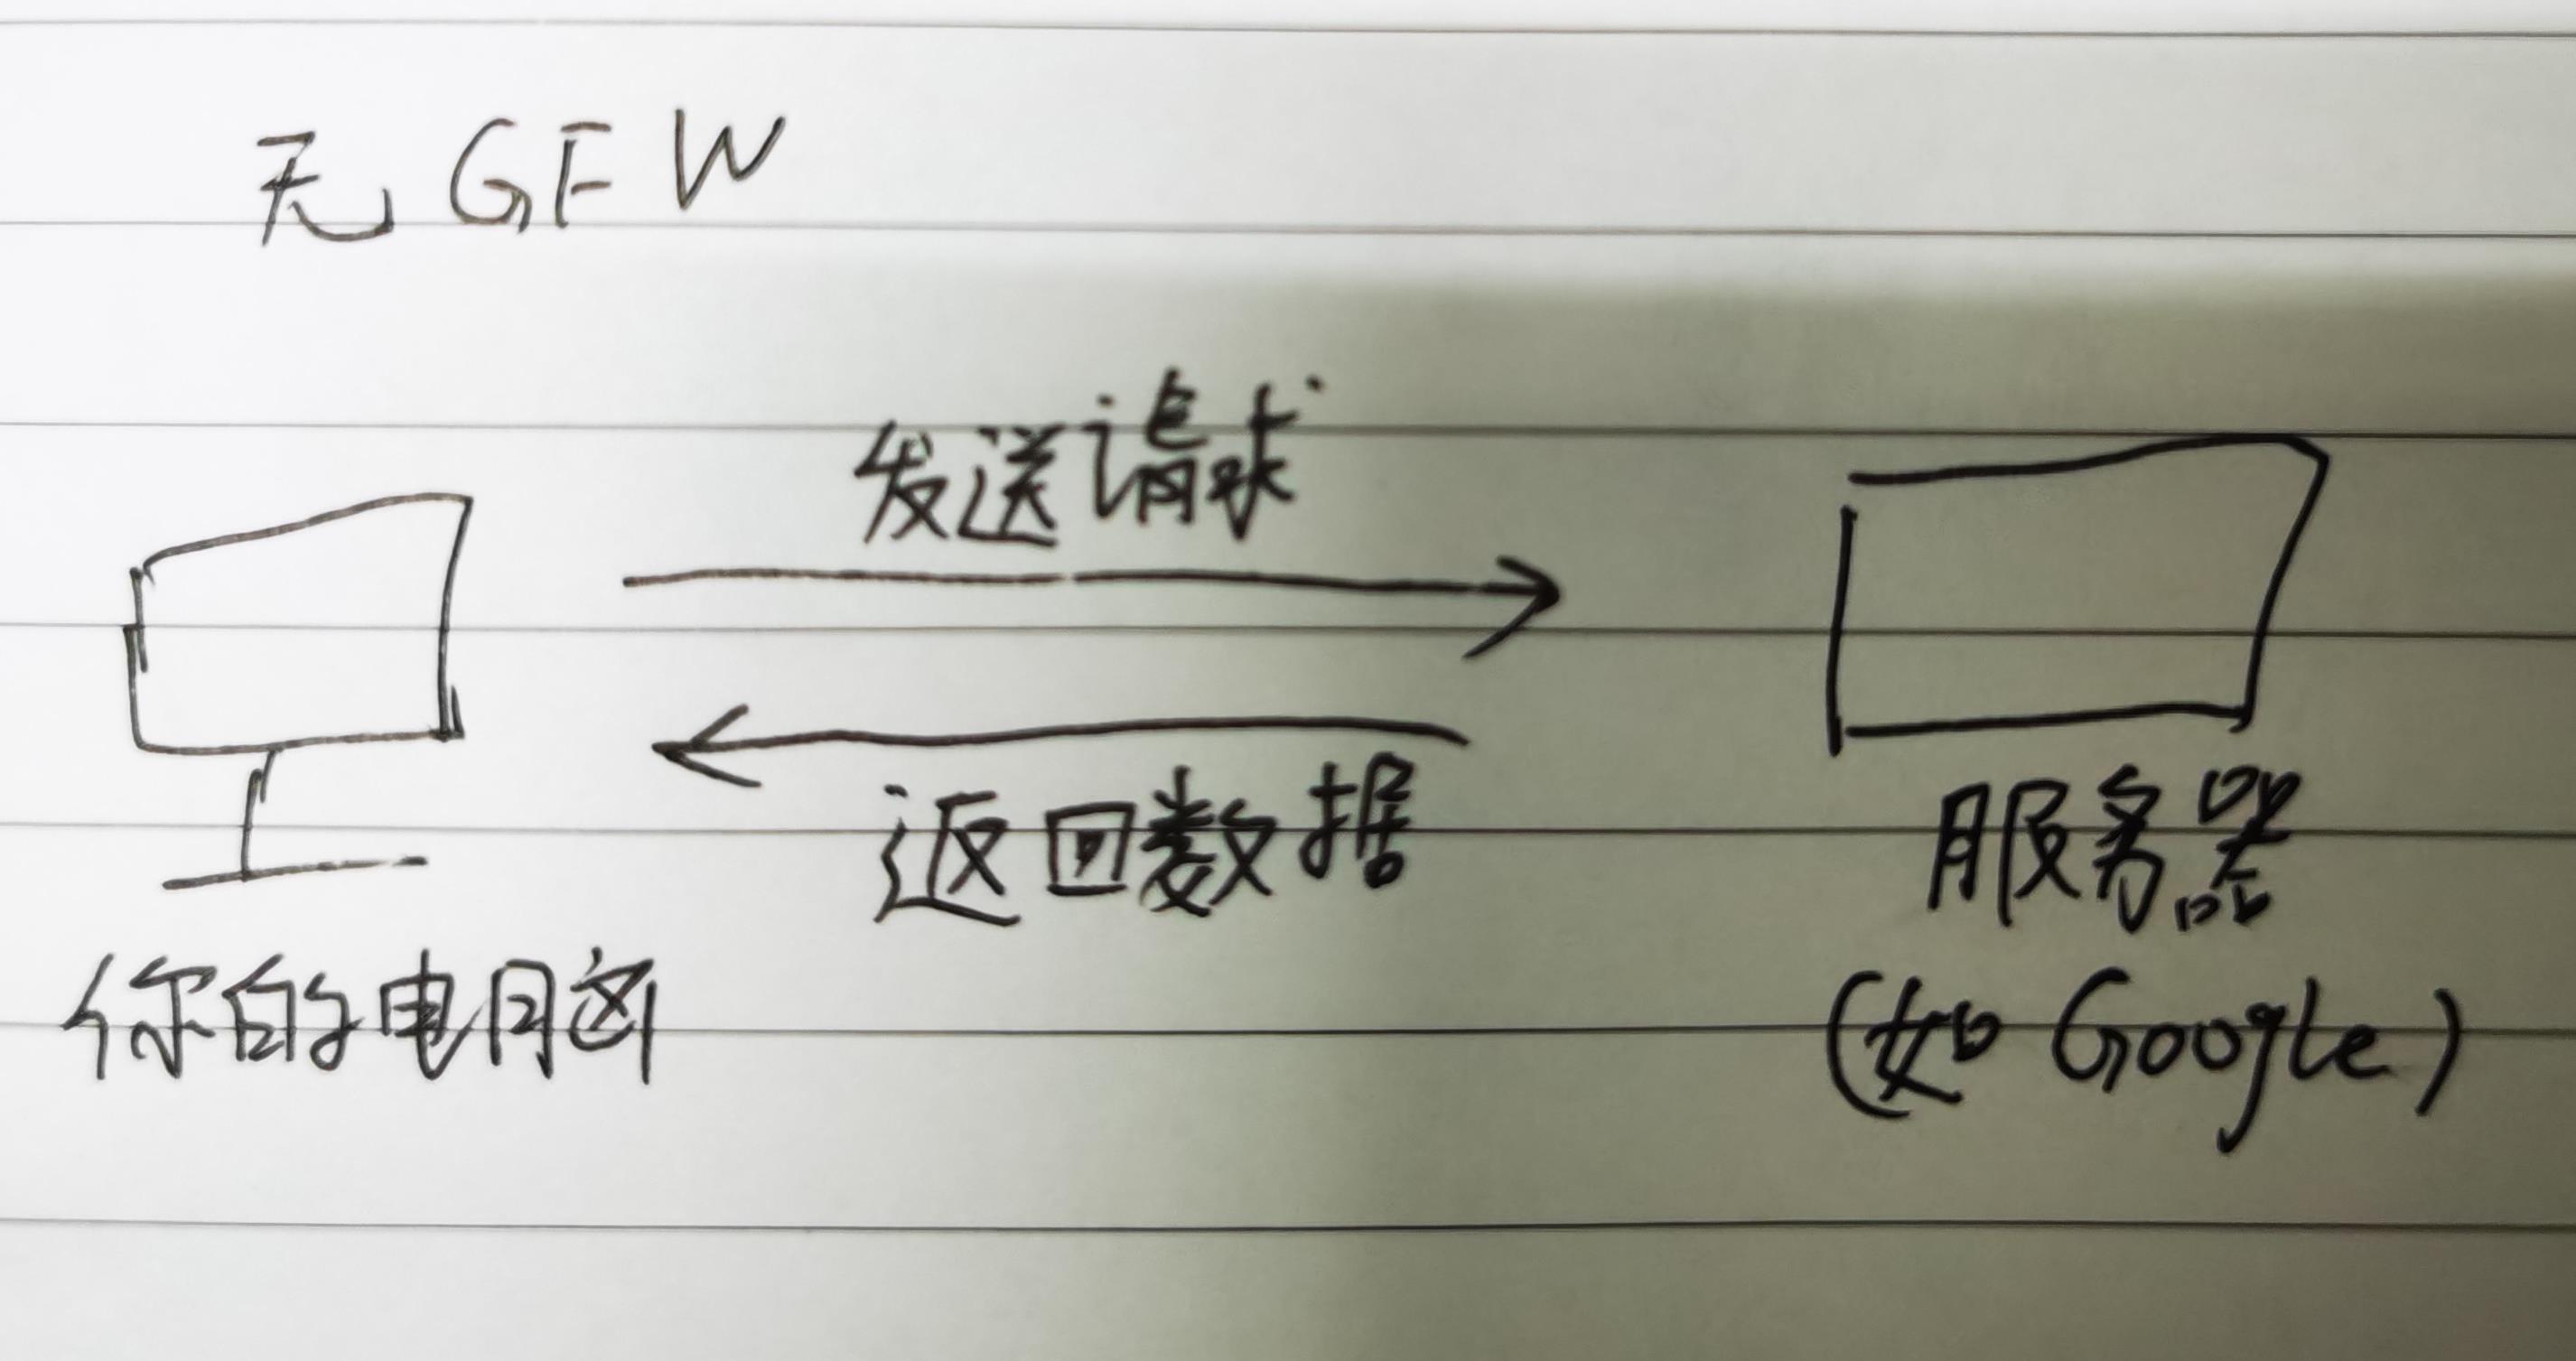 无GFW
发送请求
返回数据
你的电脑
服务器
(如Google)